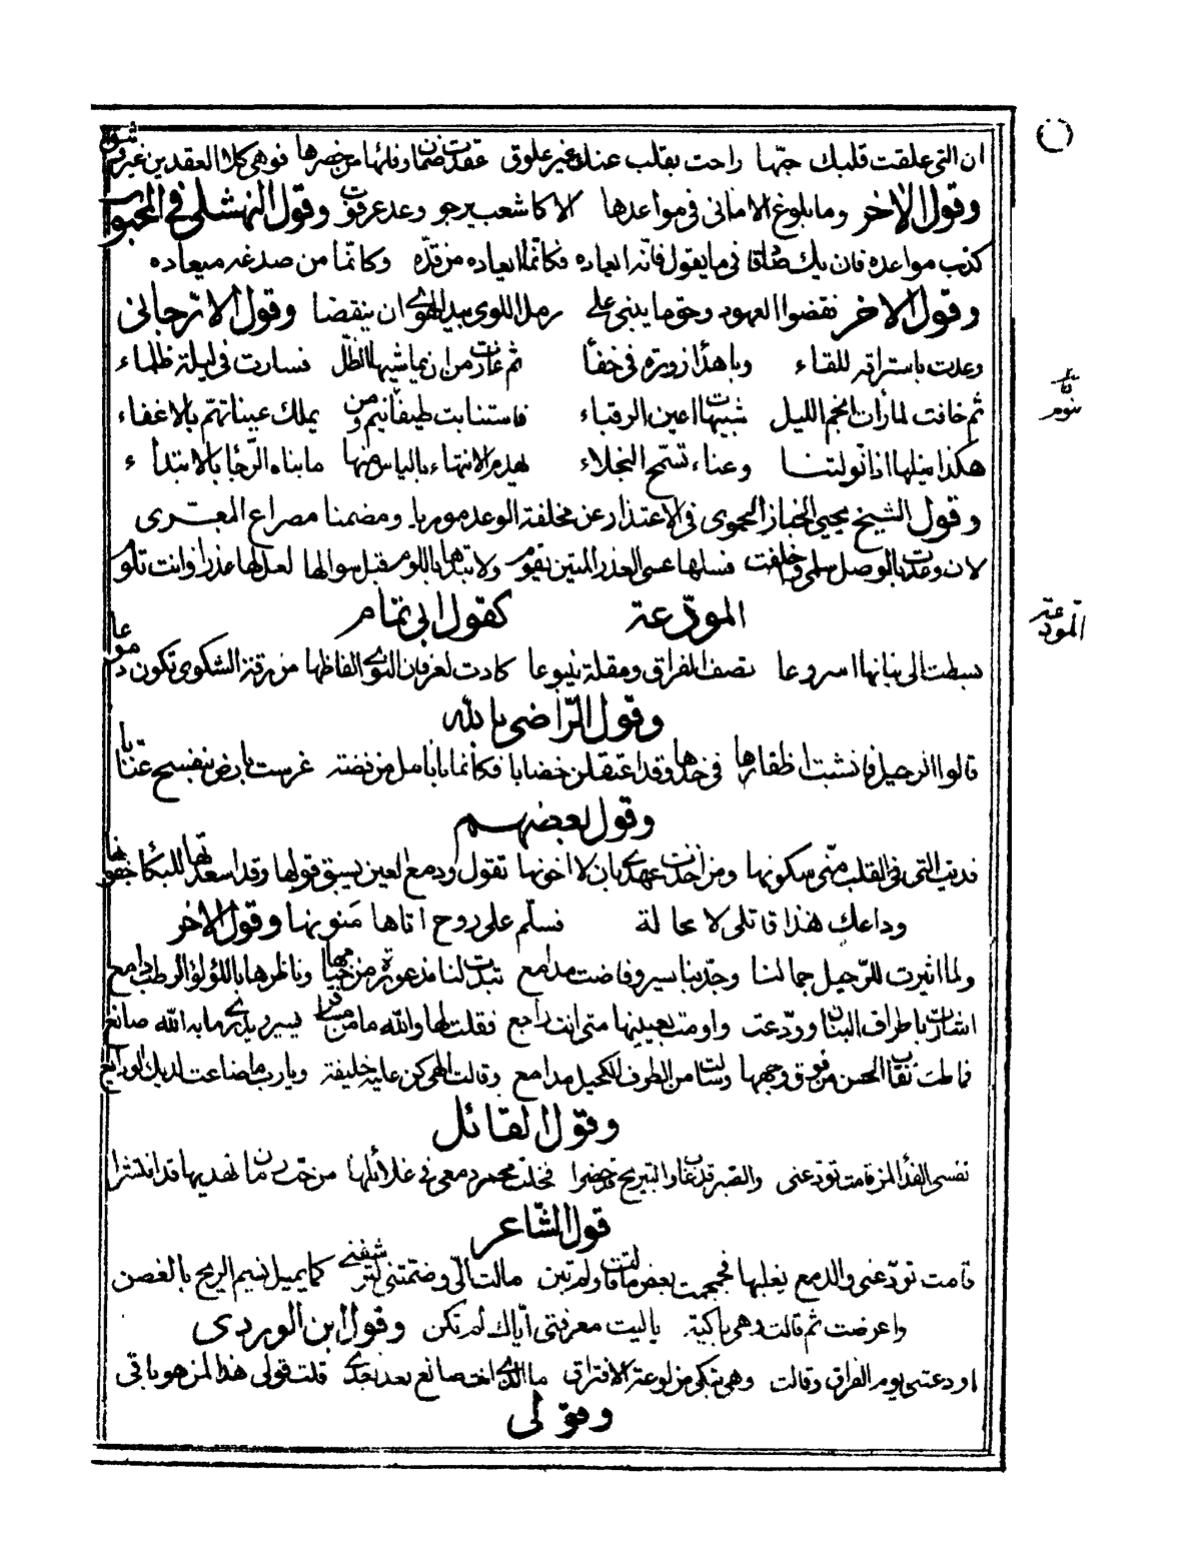 ان التي علقت قلبك حبّها راحت بقلب عنك غير علوق عقدت ضمان وفائها من خصرها فوهى كلا العقدين غير وثيق
وقول الاخر وما بلوغ الاماني في مواعدها الا كاشعب يرجو وعد عرقوب وقول النهشلي في المحبوب
كذب مواعده فان يك صادقا في ما يقول فانه ايعاده فكانّما ايعاده من قدّه وكانّما من صدغه ميعاده
وقول الاخر نقضوا العهود وحق ما يبنى على رمل اللوى بيد الهوى ان ينقضا وقول الارّجاني
وعدت باستراقة للقاء وباهدا زورة في خفأ ثم غارت من ان يماشيها الظلّ فسارت في ليلة ظلماء
ثم خافت لما رأت انجم الليل شبيهات اعين الرقباء فاستنابت طيفا يلم ومن يملك عينا تهمّ بالاغفاء
هكذا نيلها اذا نولتنا وعناء تسمّح البخلاء يهدم الانتهاء بالياس منها ما بناه الرّجا بالابتدأ ء
وقول الشيخ يحيى الخباز الحموى في الاعتذار عن مخلفة الوعد موريا ومضمنا مصراع المعرّى
لان وعدت بالوصل سلمى واخلفت فسلها عسى العذر المتين يقوم ولا تبدها باللوم قبل سوالها لعل لها عذرا وانت تلوم
المودّعة كقول ابي تمام
بسطت الى بنانها اسروعا تصف الفراق ومقلة ينبوعا كادت لعرفان النوى الفاظها من رقة الشكوى تكون دموعا
وقول الرّاضى بالله
قالوا الرحيل فانشبت اظفارها في خدها وقد اعتقلن خضابا فكانما بانامل من فضة غرست بارض بنفسج عنّابا
وقول بعضهم
فديت التي في القلب منّى سكونها ومن اخذت عهدى بان لا اخونها تقول ودمع العين يسبق قولها وقد اسعدتها للبكأ جفونها
وداعك هذا قاتلى لا محالة فسلّم على روح اتاها مَنونها وقول الاخر
ولما اثيرت للرّحيل جمالنا وجدّ بنا سير وفاضت مدامع تبدّت لنا مذعورة من خبائها وناظرها باللؤلؤ الرطب دامع
اشارت باطراف البنان وودّعت واومت بعينيها متى انت راجع فقلت لها والله ما من مسافر يسير ويدرى ما به الله صانع
فحاطت نقاب الحسن من فوق وجهها وسالت من الطرف الكحيل مدامع وقالت الهى كن عليه خليفة ويا رب ما ضاعت لديك الودائع
وقول القائل
نفسي الفدأ لمن قامت تودّعنى والصبر قد غاب والتبريح قد حضرا
قول الشّاعر
قامت تودّعنى والدمع يغلبها فجمجمت بعض ما قالت ولم تبن مالت اليّ وضمّتنى لترشفنى كما يميل نسيم الريح بالغصن
واعرضت ثم قالت وهى باكية يا ليت معرفتى ايّاك لم تكن وقول ابن الوردى
اودعتنى يوم الفراق وقالت وهى تبكى من لوعة الافتراق ما الذى انت صانع بعد بعدى قلت قولى هذا لمن هو باقى
وقولى
المودّعة